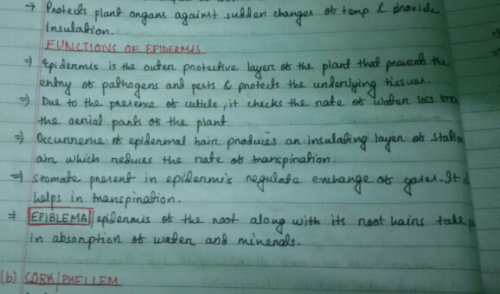 → Protects plant organs against sudden changes of temp & provide
insulation.
FUNCTIONS OF EPIDERMIS
⇒ Epidermis is the outer protective layer of the plant that prevents the
entry of pathogens and pests & protects the underlying tissues.
⇒ Due to the presence of cuticle, it checks the rate of water loss
the aerial parts of the plant.
⇒ Occurrence of epidermal hair produces an insulating layer of
air which reduces the rate of transpiration.
⇒ stomata present in epidermis regulate exchange of gases. It
helps in transpiration.
⇒ EPIBLEMA epidermis of the root along with its root hairs take
in absorption of water and minerals.
(b) CORK/PHELLEM